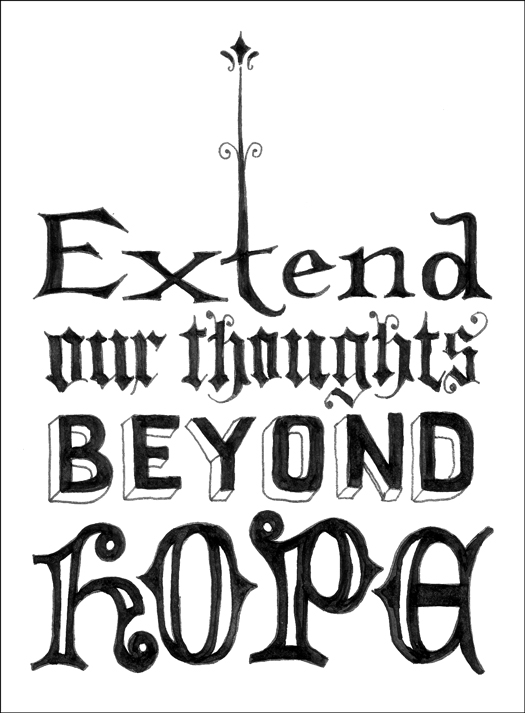 Extend
our thoughts
BEYOND
HOPE